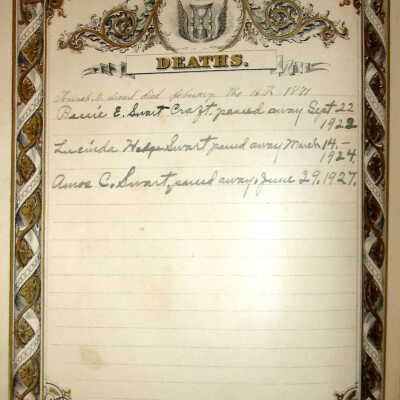 DEATHS.
died the 16th 1871
Bessie E. Swart Craft, passed away Sept 22
1922
Lucinda Hedge Swart passed away March 14.-
1924.
Amos C. Swart, passed away, June 29, 1927.